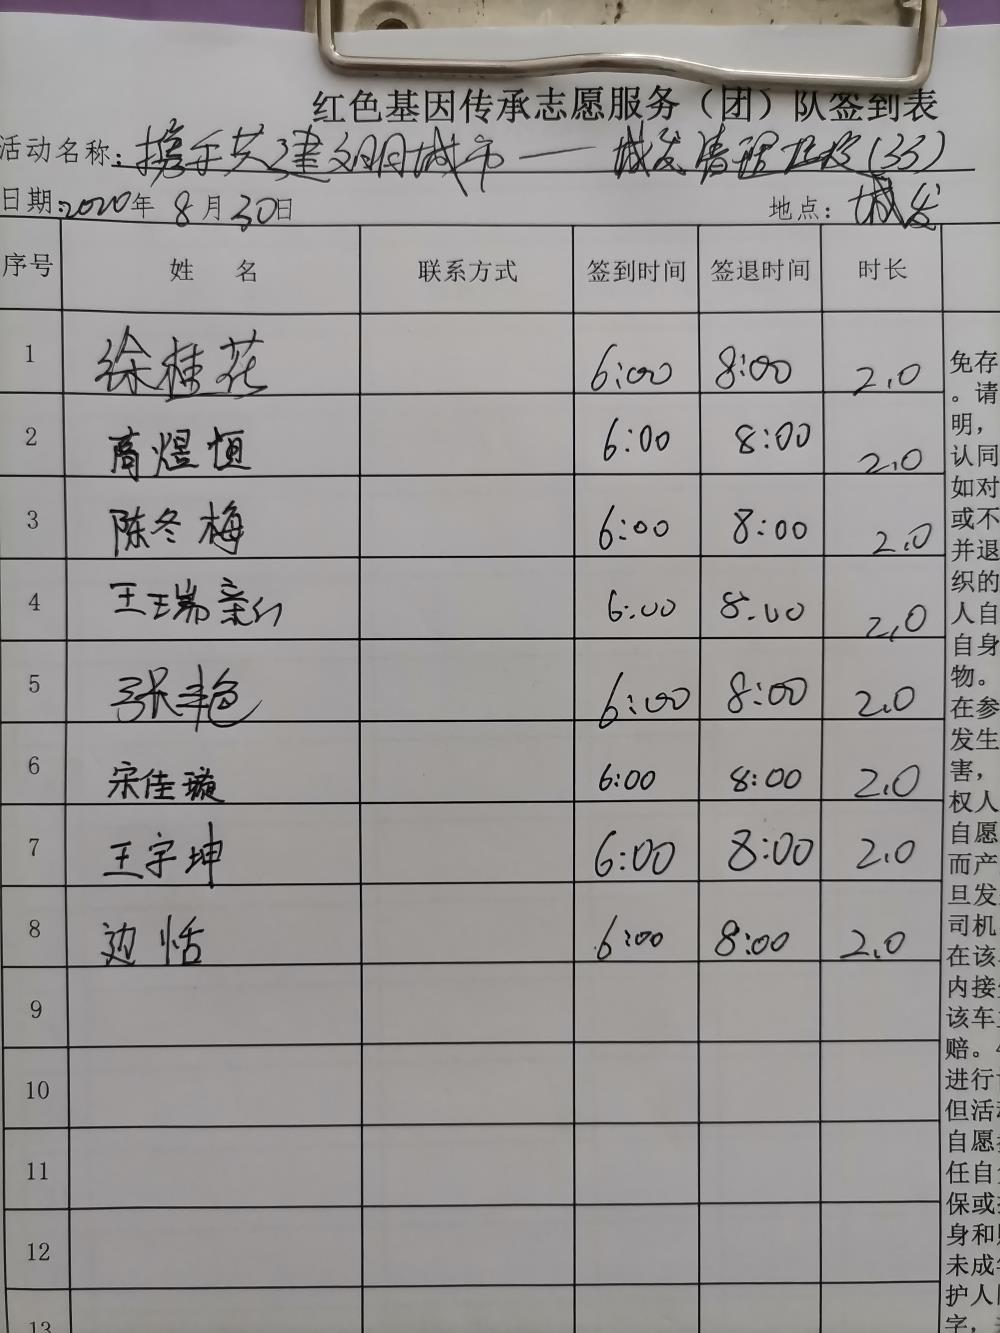 红色基因传承志愿服务（团）队签到表
活动名称：携手共建文明城市——城发清理垃圾(33)
日期：2020年8月30日 地点：城发
序号 姓名 联系方式 签到时间 签退时间 时长
1 徐桂花 6:00 8:00 2.0
2 商煜恒 6:00 8:00 2.0
3 陈冬梅 6:00 8:00 2.0
4 王瑞 6:00 8:00 2.0
5 张丰艳 6:00 8:00 2.0
6 宋佳璇 6:00 8:00 2.0
7 王宇坤 6:00 8:00 2.0
8 边恬 6:00 8:00 2.0
9
10
11
12
13
免存
。请
明，
认同
如对
或不
并退
织的
人自
自身
物。
在参
发生
害，
权人
自愿
而产
旦发
司机
在该
内接
该车
赔。
进行
但活
自愿
任自
保或
身和
未成
护人
字，